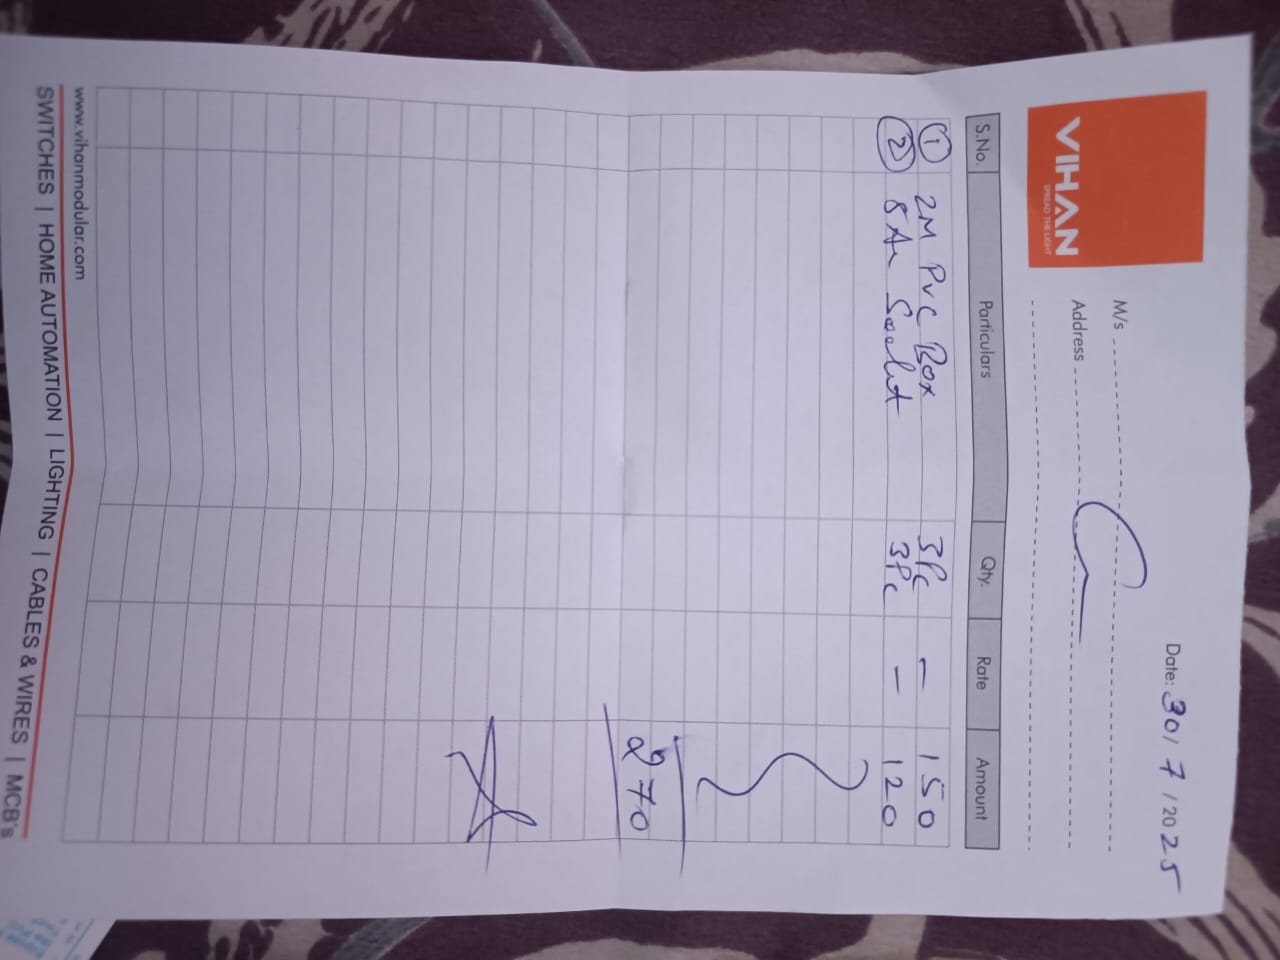 VIHAN
SPREAD THE LIGHT
Date: 30/7/2025
M/s
Address
S.No. Particulars Qty. Rate Amount
1 2M PVC Box 3Pc - 150
2 5A Socket 3Pc - 120
270
www.vihanmodular.com
SWITCHES | HOME AUTOMATION | LIGHTING | CABLES & WIRES | MCB's